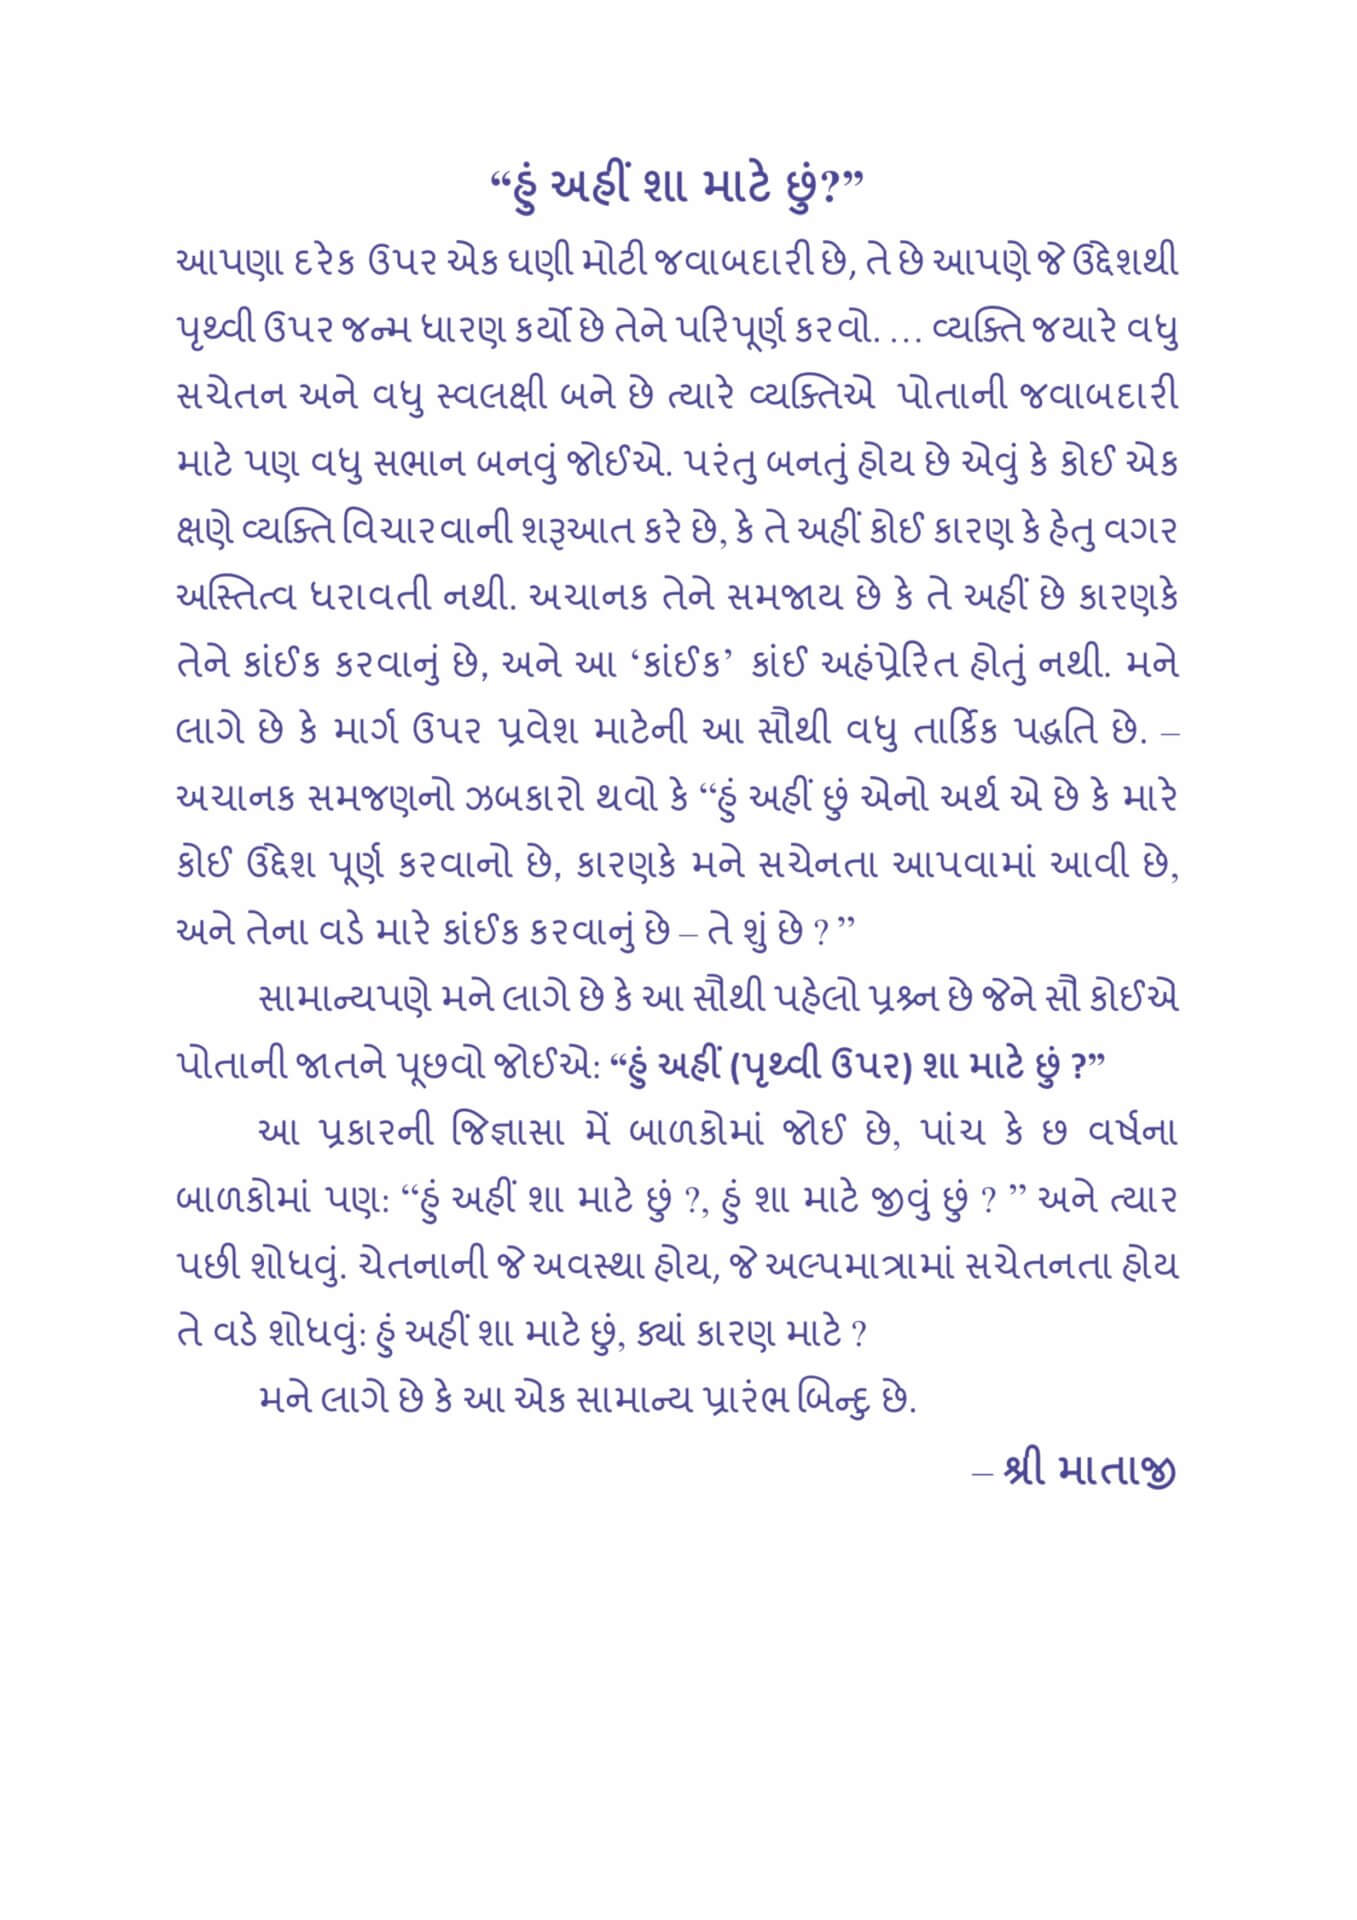 “હું અહીં શા માટે છું?”
આપણા દરેક ઉપર એક ઘણી મોટી જવાબદારી છે, તે છે આપણે જે ઉદ્દેશથી
પૃથ્વી ઉપર જન્મ ધારણ કર્યો છે તેને પરિપૂર્ણ કરવો. … વ્યક્તિ જયારે વધુ
સચેતન અને વધુ સ્વલક્ષી બને છે ત્યારે વ્યક્તિએ પોતાની જવાબદારી
માટે પણ વધુ સભાન બનવું જોઈએ. પરંતુ બનતું હોય છે એવું કે કોઈ એક
ક્ષણે વ્યક્તિ વિચારવાની શરૂઆત કરે છે, કે તે અહીં કોઈ કારણ કે હેતુ વગર
અસ્તિત્વ ધરાવતી નથી. અચાનક તેને સમજાય છે કે તે અહીં છે કારણકે
તેને કાંઈક કરવાનું છે, અને આ ‘કાંઈક’ કાંઈ અહંપ્રેરિત હોતું નથી. મને
લાગે છે કે માર્ગ ઉપર પ્રવેશ માટેની આ સૌથી વધુ તાર્કિક પદ્ધતિ છે. –
અચાનક સમજણનો ઝબકારો થવો કે “હું અહીં છું એનો અર્થ એ છે કે મારે
કોઈ ઉદ્દેશ પૂર્ણ કરવાનો છે, કારણકે મને સચેનતા આપવામાં આવી છે,
અને તેના વડે મારે કાંઈક કરવાનું છે – તે શું છે ? ”
સામાન્યપણે મને લાગે છે કે આ સૌથી પહેલો પ્રશ્ન છે જેને સૌ કોઈએ
પોતાની જાતને પૂછવો જોઈએ: “હું અહીં (પૃથ્વી ઉપર) શા માટે છું ?”
આ પ્રકારની જિજ્ઞાસા મેં બાળકોમાં જોઈ છે, પાંચ કે છ વર્ષના
બાળકોમાં પણ: “હું અહીં શા માટે છું ?, હું શા માટે જીવું છું ? ” અને ત્યાર
પછી શોધવું. ચેતનાની જે અવસ્થા હોય, જે અલ્પમાત્રામાં સચેતનતા હોય
તે વડે શોધવું: હું અહીં શા માટે છું, ક્યાં કારણ માટે ?
મને લાગે છે કે આ એક સામાન્ય પ્રારંભ બિન્દુ છે.
– શ્રી માતાજી